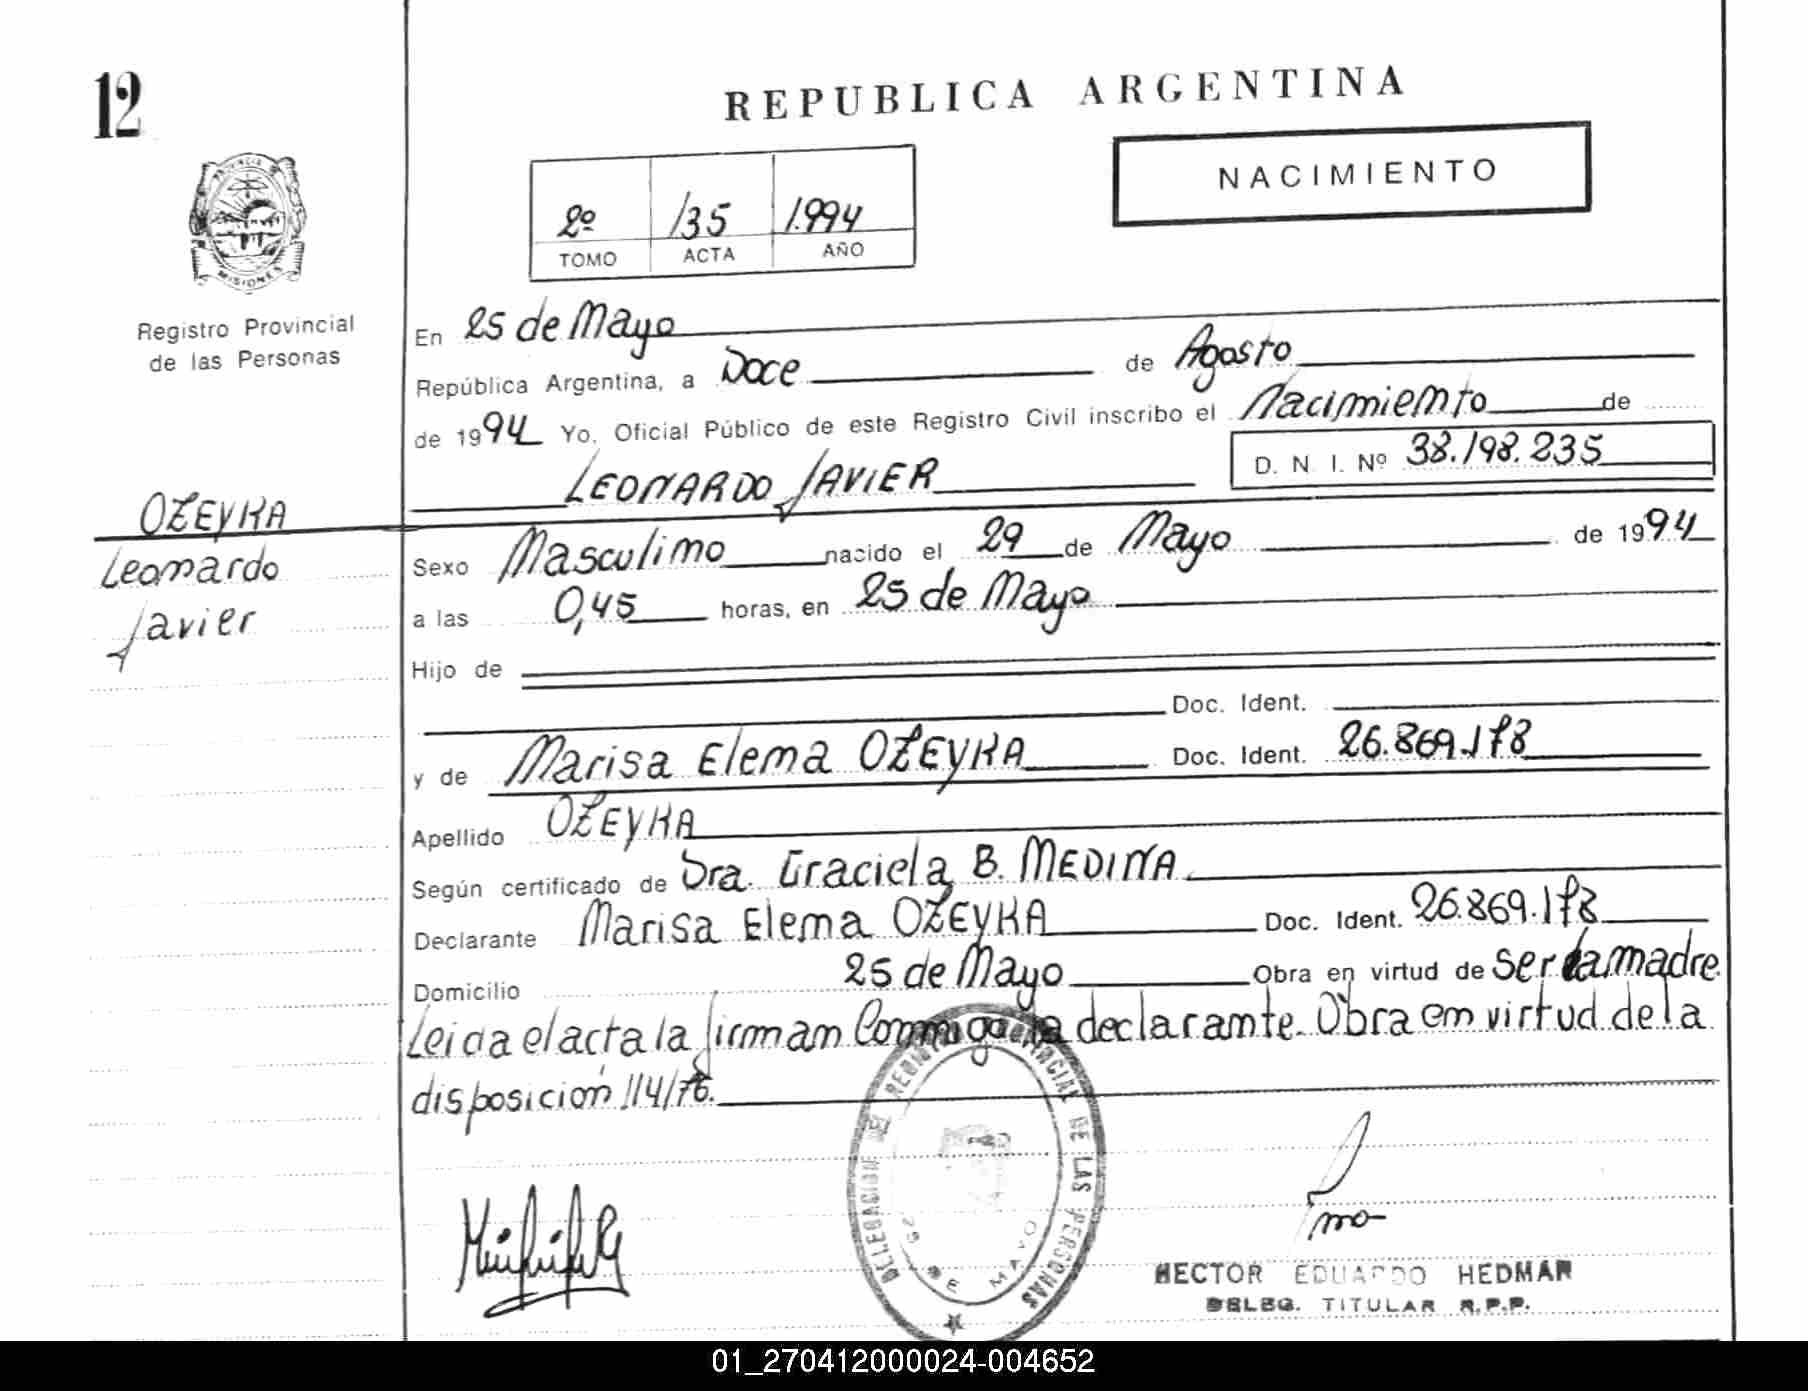 12
REPUBLICA ARGENTINA
NACIMIENTO
2º /35 1.994
TOMO ACTA AÑO
PROVINCIA DE
MISIONES
Registro Provincial
de las Personas
En 25 de Mayo
República Argentina, a Doce de Agosto
de 1994 Yo, Oficial Público de este Registro Civil inscribo el Nacimiento de
D. N. I. Nº 38.198.235
LEONARDO JAVIER
OZEYKA
Leonardo
Javier
Sexo Masculino nacido el 29 de Mayo de 1994
a las 0,45 horas, en 25 de Mayo
Hijo de
Doc. Ident.
y de Marisa Elena OZEYKA Doc. Ident. 26.869.178
Apellido OZEYKA
Según certificado de Dra. Graciela B. MEDINA
Declarante Marisa Elena OZEYKA Doc. Ident. 26.869.178
Domicilio 25 de Mayo Obra en virtud de ser la madre
Leida el acta la firman Conmigo la declarante. Obra en virtud de la
disposición 114/76.
DELEGACION DEL REGISTRO PROVINCIAL DE LAS PERSONAS
25 DE MAYO
HECTOR EDUARDO HEDMAN
DELEG. TITULAR R.P.P.
01_270412000024-004652